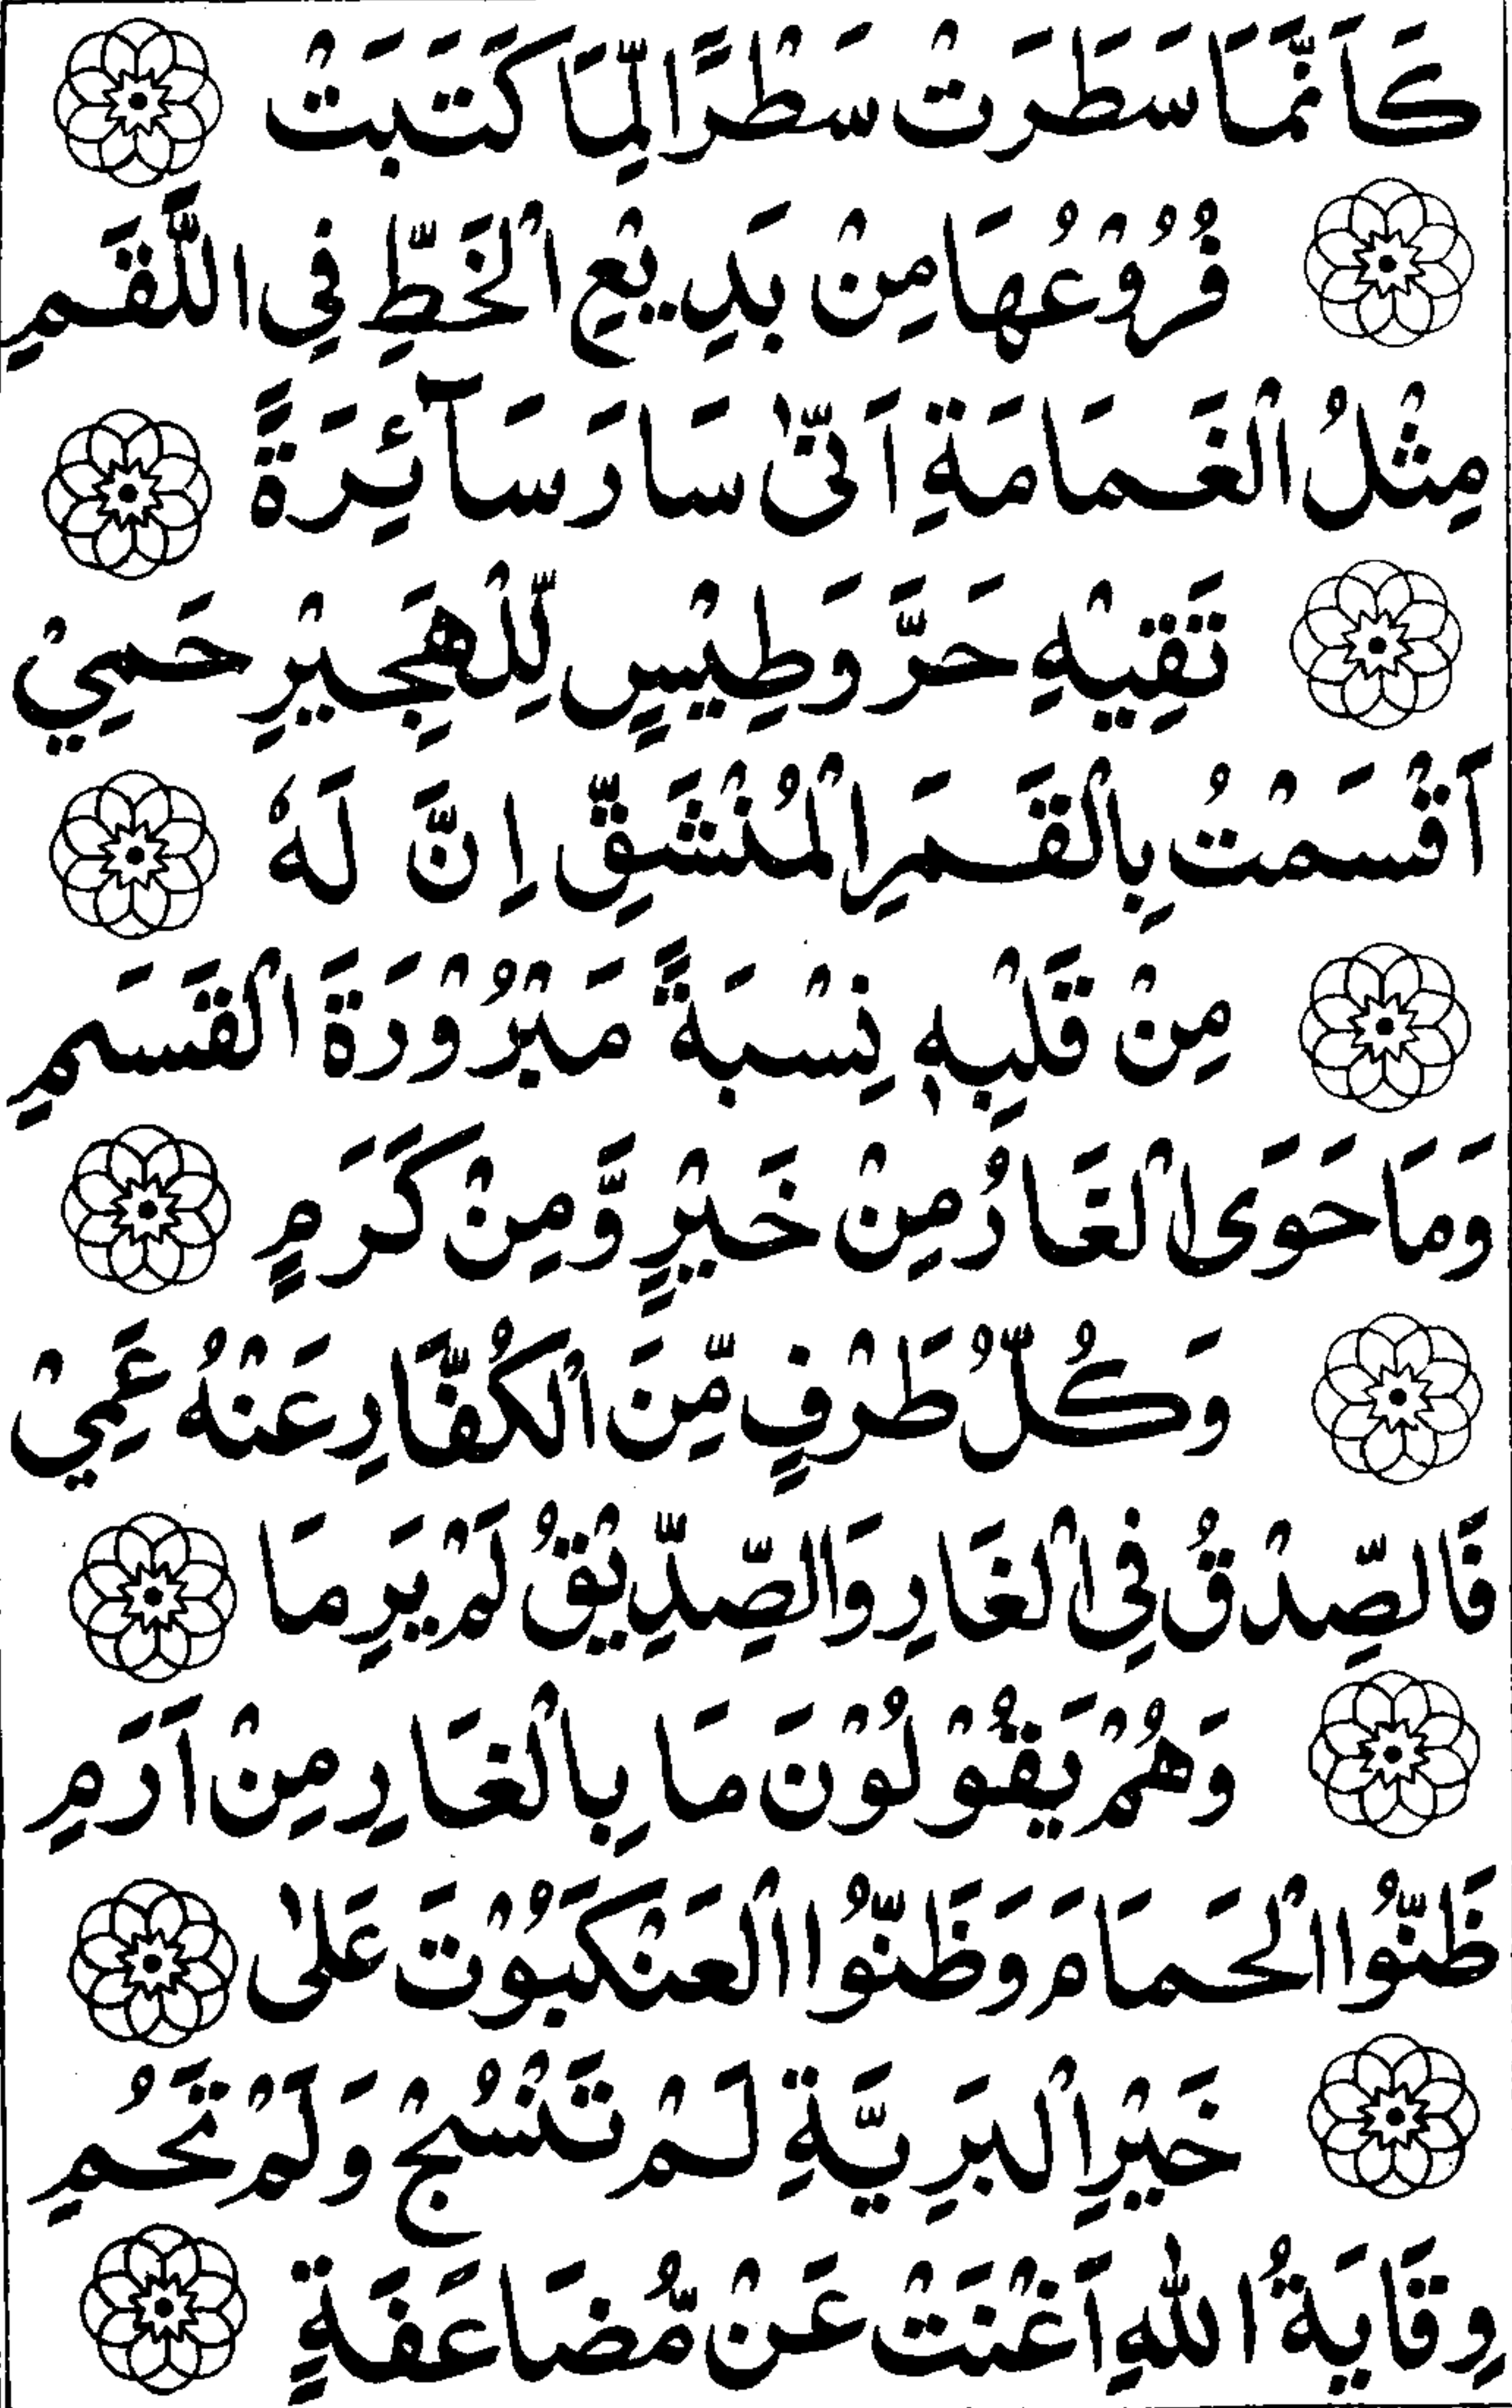 كَاَنَّمَا سَطَرَتْ سَطْرًا لِّمَا كَتَبَتْ
فُرُوْعُهَا مِنْ بَدِيْعِ الْخَطِّ فِي اللَّقَمِ
مِثْلُ الْغَمَامَةِ اَنّٰى سَارَ سَآئِرَةً
تَقِيْهِ حَرَّ وَطِيْسٍ لِّلْهَجِيْرِ حَمِيْ
اَقْسَمْتُ بِالْقَمَرِ الْمُنْشَقِّ اِنَّ لَهٗ
مِنْ قَلْبِهٖ نِسْبَةً مَبْرُوْرَةَ الْقَسَمِ
وَمَا حَوَى الْغَارُ مِنْ خَيْرٍ وَّمِنْ كَرَمٍ
وَكُلُّ طَرْفٍ مِّنَ الْكُفَّارِ عَنْهُ عَمِيْ
فَالصِّدْقُ فِي الْغَارِ وَالصِّدِّيْقُ لَمْ يَرِمَا
وَهُمْ يَقُوْلُوْنَ مَا بِالْغَارِ مِنْ اَرَمِ
ظَنُّوا الْحَمَامَ وَظَنُّوا الْعَنْكَبُوْتَ عَلٰى
خَيْرِ الْبَرِيَّةِ لَمْ تَنْسُجْ وَلَمْ تَحُمِ
وِقَايَةُ اللهِ اَغْنَتْ عَنْ مُّضَاعَفَةٍ